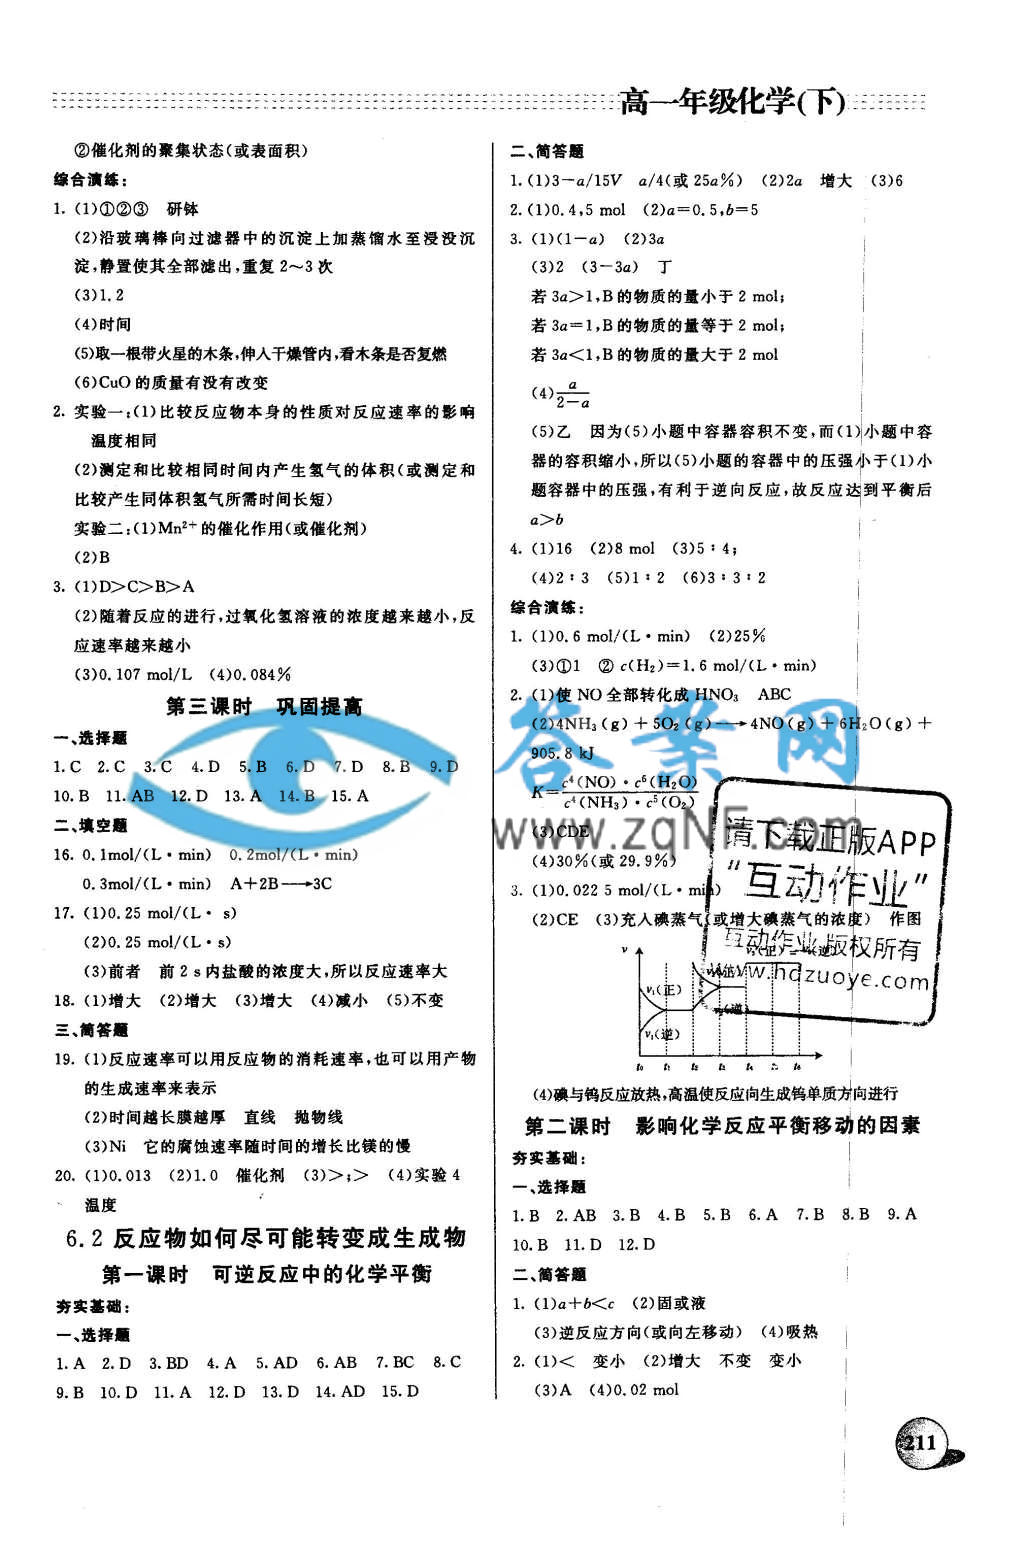 高一年级化学(下)
②催化剂的聚集状态(或表面积)
综合演练:
1. (1)①②③　研钵
(2)沿玻璃棒向过滤器中的沉淀上加蒸馏水至浸没沉
淀,静置使其全部滤出,重复 2～3 次
(3)1.2
(4)时间
(5)取一根带火星的木条,伸入干燥管内,看木条是否复燃
(6)CuO 的质量有没有改变
2. 实验一:(1)比较反应物本身的性质对反应速率的影响
温度相同
(2)测定和比较相同时间内产生氢气的体积(或测定和
比较产生同体积氢气所需时间长短)
实验二:(1)Mn²⁺ 的催化作用(或催化剂)
(2)B
3. (1)D>C>B>A
(2)随着反应的进行,过氧化氢溶液的浓度越来越小,反
应速率越来越小
(3)0.107 mol/L　(4)0.084%
第三课时　巩固提高
一、选择题
1. C　2. C　3. C　4. D　5. B　6. D　7. D　8. B　9. D
10. B　11. AB　12. D　13. A　14. B　15. A
二、填空题
16. 0.1mol/(L·min)　0.2mol/(L·min)
0.3mol/(L·min)　A+2B⟶3C
17. (1)0.25 mol/(L· s)
(2)0.25 mol/(L·s)
(3)前者　前 2 s 内盐酸的浓度大,所以反应速率大
18. (1)增大　(2)增大　(3)增大　(4)减小　(5)不变
三、简答题
19. (1)反应速率可以用反应物的消耗速率,也可以用产物
的生成速率来表示
(2)时间越长膜越厚　直线　抛物线
(3)Ni　它的腐蚀速率随时间的增长比镁的慢
20. (1)0.013　(2)1.0　催化剂　(3)>;>　(4)实验 4
温度
6.2 反应物如何尽可能转变成生成物
第一课时　可逆反应中的化学平衡
夯实基础:
一、选择题
1. A　2. D　3. BD　4. A　5. AD　6. AB　7. BC　8. C
9. B　10. D　11. A　12. D　13. D　14. AD　15. D
二、简答题
1. (1)3－a/15V　a/4(或 25a%)　(2)2a　增大　(3)6
2. (1)0.4,5 mol　(2)a=0.5,b=5
3. (1)(1－a)　(2)3a
(3)2　(3－3a)　丁
若 3a>1,B 的物质的量小于 2 mol;
若 3a=1,B 的物质的量等于 2 mol;
若 3a<1,B 的物质的量大于 2 mol
(4) a/(2－a)
(5)乙　因为(5)小题中容器容积不变,而(1)小题中容
器的容积缩小,所以(5)小题的容器中的压强小于(1)小
题容器中的压强,有利于逆向反应,故反应达到平衡后
a>b
4. (1)16　(2)8 mol　(3)5∶4;
(4)2∶3　(5)1∶2　(6)3∶3∶2
综合演练:
1. (1)0.6 mol/(L·min)　(2)25%
(3)①1　② c(H₂)=1.6 mol/(L·min)
2. (1)使 NO 全部转化成 HNO₃　ABC
(2)4NH₃(g)＋5O₂(g)⟶4NO(g)＋6H₂O(g)＋
905.8 kJ
K= c⁴(NO)·c⁶(H₂O) / c⁴(NH₃)·c⁵(O₂)
(3)CDE
(4)30%(或 29.9%)
3. (1)0.022 5 mol/(L·min)
(2)CE　(3)充入碘蒸气(或增大碘蒸气的浓度)　作图
v
v₁(正)
v₁(逆)
t₀　t₁　t₂　t₃　t₄　t₅　t₆
(4)碘与钨反应放热,高温使反应向生成钨单质方向进行
第二课时　影响化学反应平衡移动的因素
夯实基础:
一、选择题
1. B　2. AB　3. B　4. B　5. B　6. A　7. B　8. B　9. A
10. B　11. D　12. D
二、简答题
1. (1)a+b<c　(2)固或液
(3)逆反应方向(或向左移动)　(4)吸热
2. (1)<　变小　(2)增大　不变　变小
(3)A　(4)0.02 mol
211
答案网
www.zqNF.com
请下载正版APP
"互动作业"
互动作业 版权所有
www.hdzuoye.com